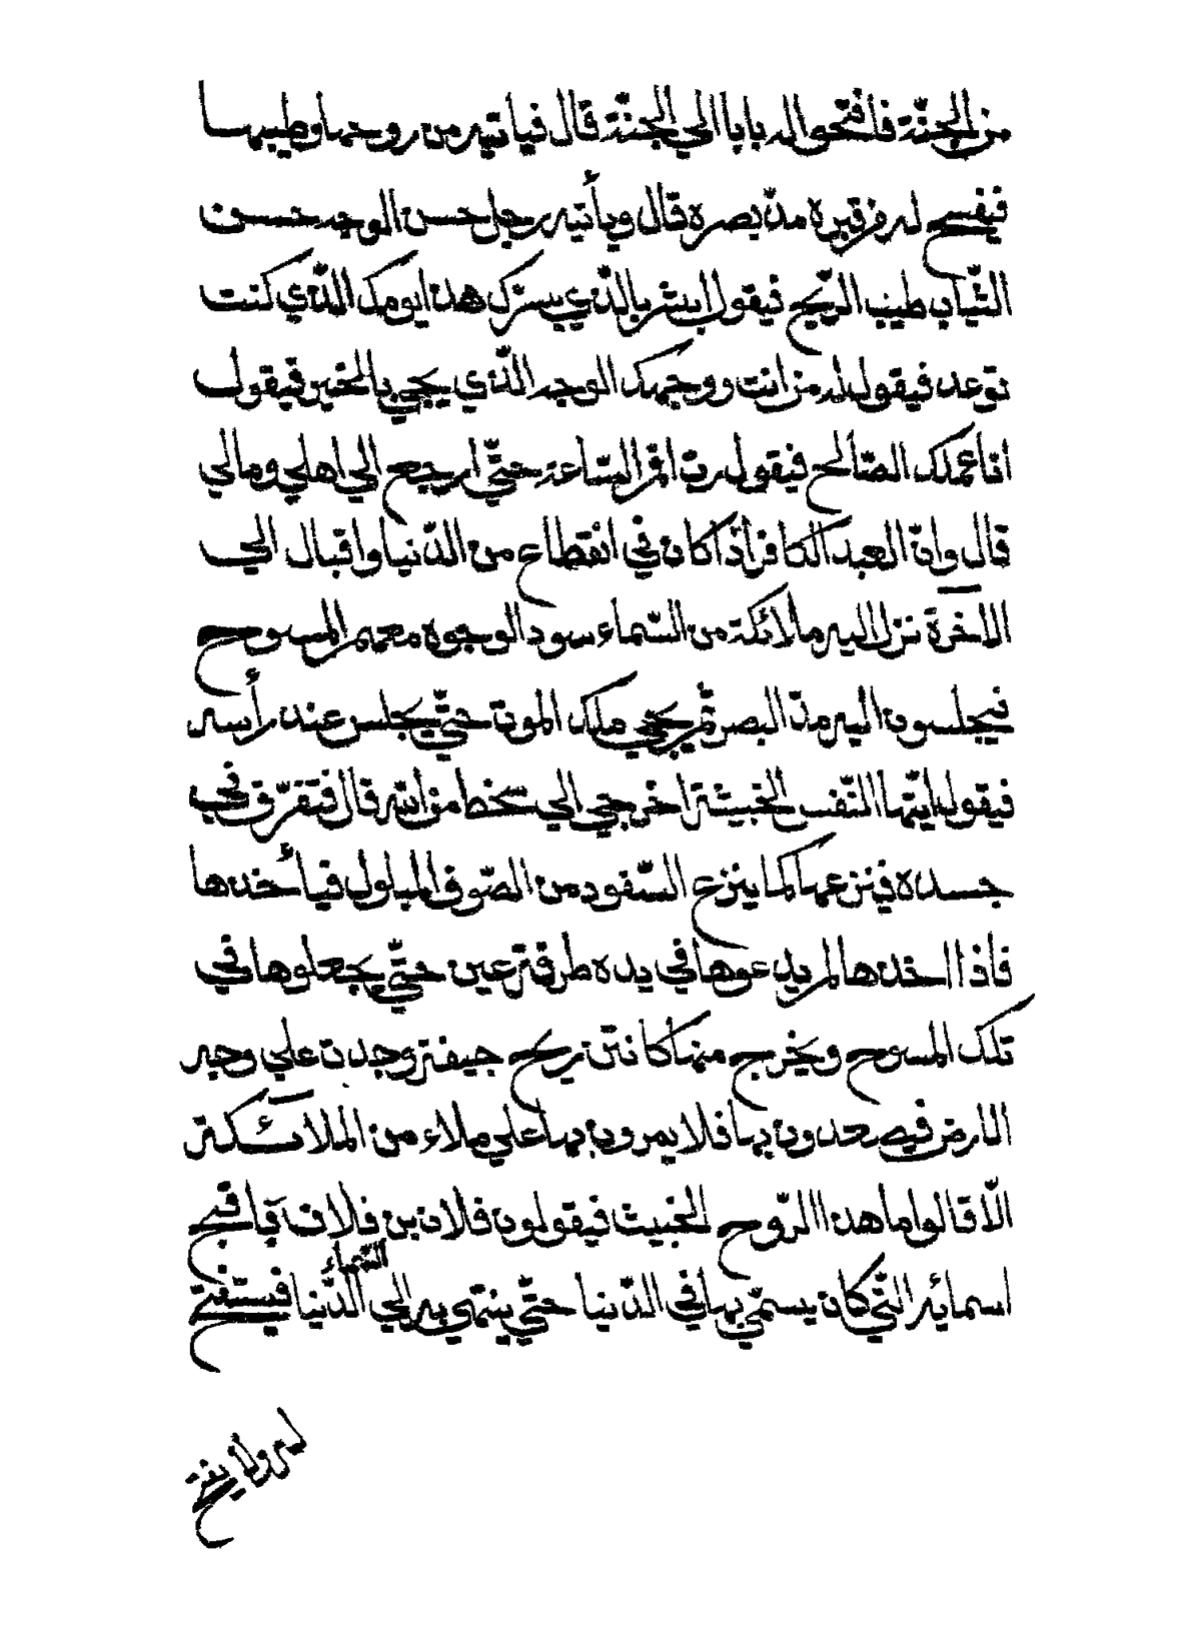 من الجنّة فافتحوا له بابا الي الجنّة قال فياتيه من روحها وطيبها
فيفسح له في قبره مدّ بصره قال ويأتيه رجل حسن الوجه حسن
الثّياب طيب الرّيح فيقول ابشر بالّذي يسرّك هذا يومك الّذي كنت
توعد فيقول له من انت ووجهك الوجه الّذي يجي بالخير فيقول
انا عملك الصّالح فيقول ربّ اقم السّاعة حتّي ارجع الي اهلي ومالي
قال وانّ العبد الكافر اذا كان في انقطاع من الدّنيا واقبال الي
الاخرة نزل اليه ملائكة من السّماء سود الوجوه معهم المسوح
فيجلسون اليه مدّ البصر ثمّ يجي ملك الموت حتّي يجلس عند رأسه
فيقول ايّتها النّفس الخبيثة اخرجي الي سخط من الله قال فتفرّق في
جسده فينزعها كما ينزع السّفود من الصّوف المبلول فيأخذها
فاذا اخذها لم يدعوها في يده طرفة عين حتّي يجعلوها في
تلك المسوح ويخرج منها كانتن ريح جيفة وجدت علي وجه
الارض فيصعدون بها فلا يمرون بها علي ملاء من الملآئكة
الّا قالوا ما هذا الرّوح الخبيث فيقولون فلان بن فلان باقبح
اسمائه الّتي كان يسمّي بها في الدّنيا حتّي ينتهي به الي السّماء الدّنيا فيستفتح
له ولا يفتح